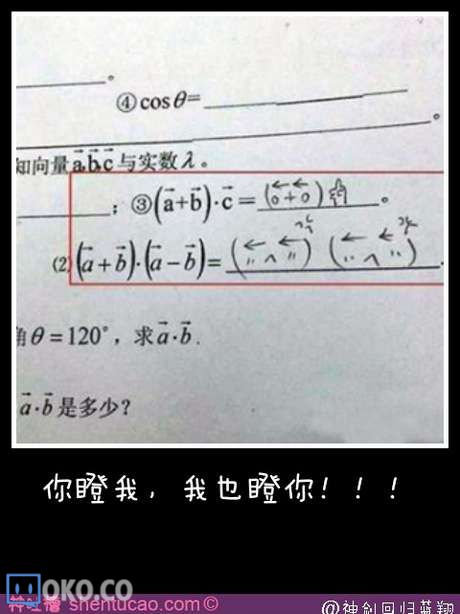 ④cosθ=
知向量a⃗,b⃗,c⃗与实数λ。
;③(a⃗+b⃗)·c⃗=
(2)(a⃗+b⃗)·(a⃗-b⃗)=
角θ=120°,求a⃗·b⃗.
a⃗·b⃗是多少?
你瞪我,我也瞪你!!!
OKO.CO
神吐槽 shentucao.com©
@神剑回归蓝翔